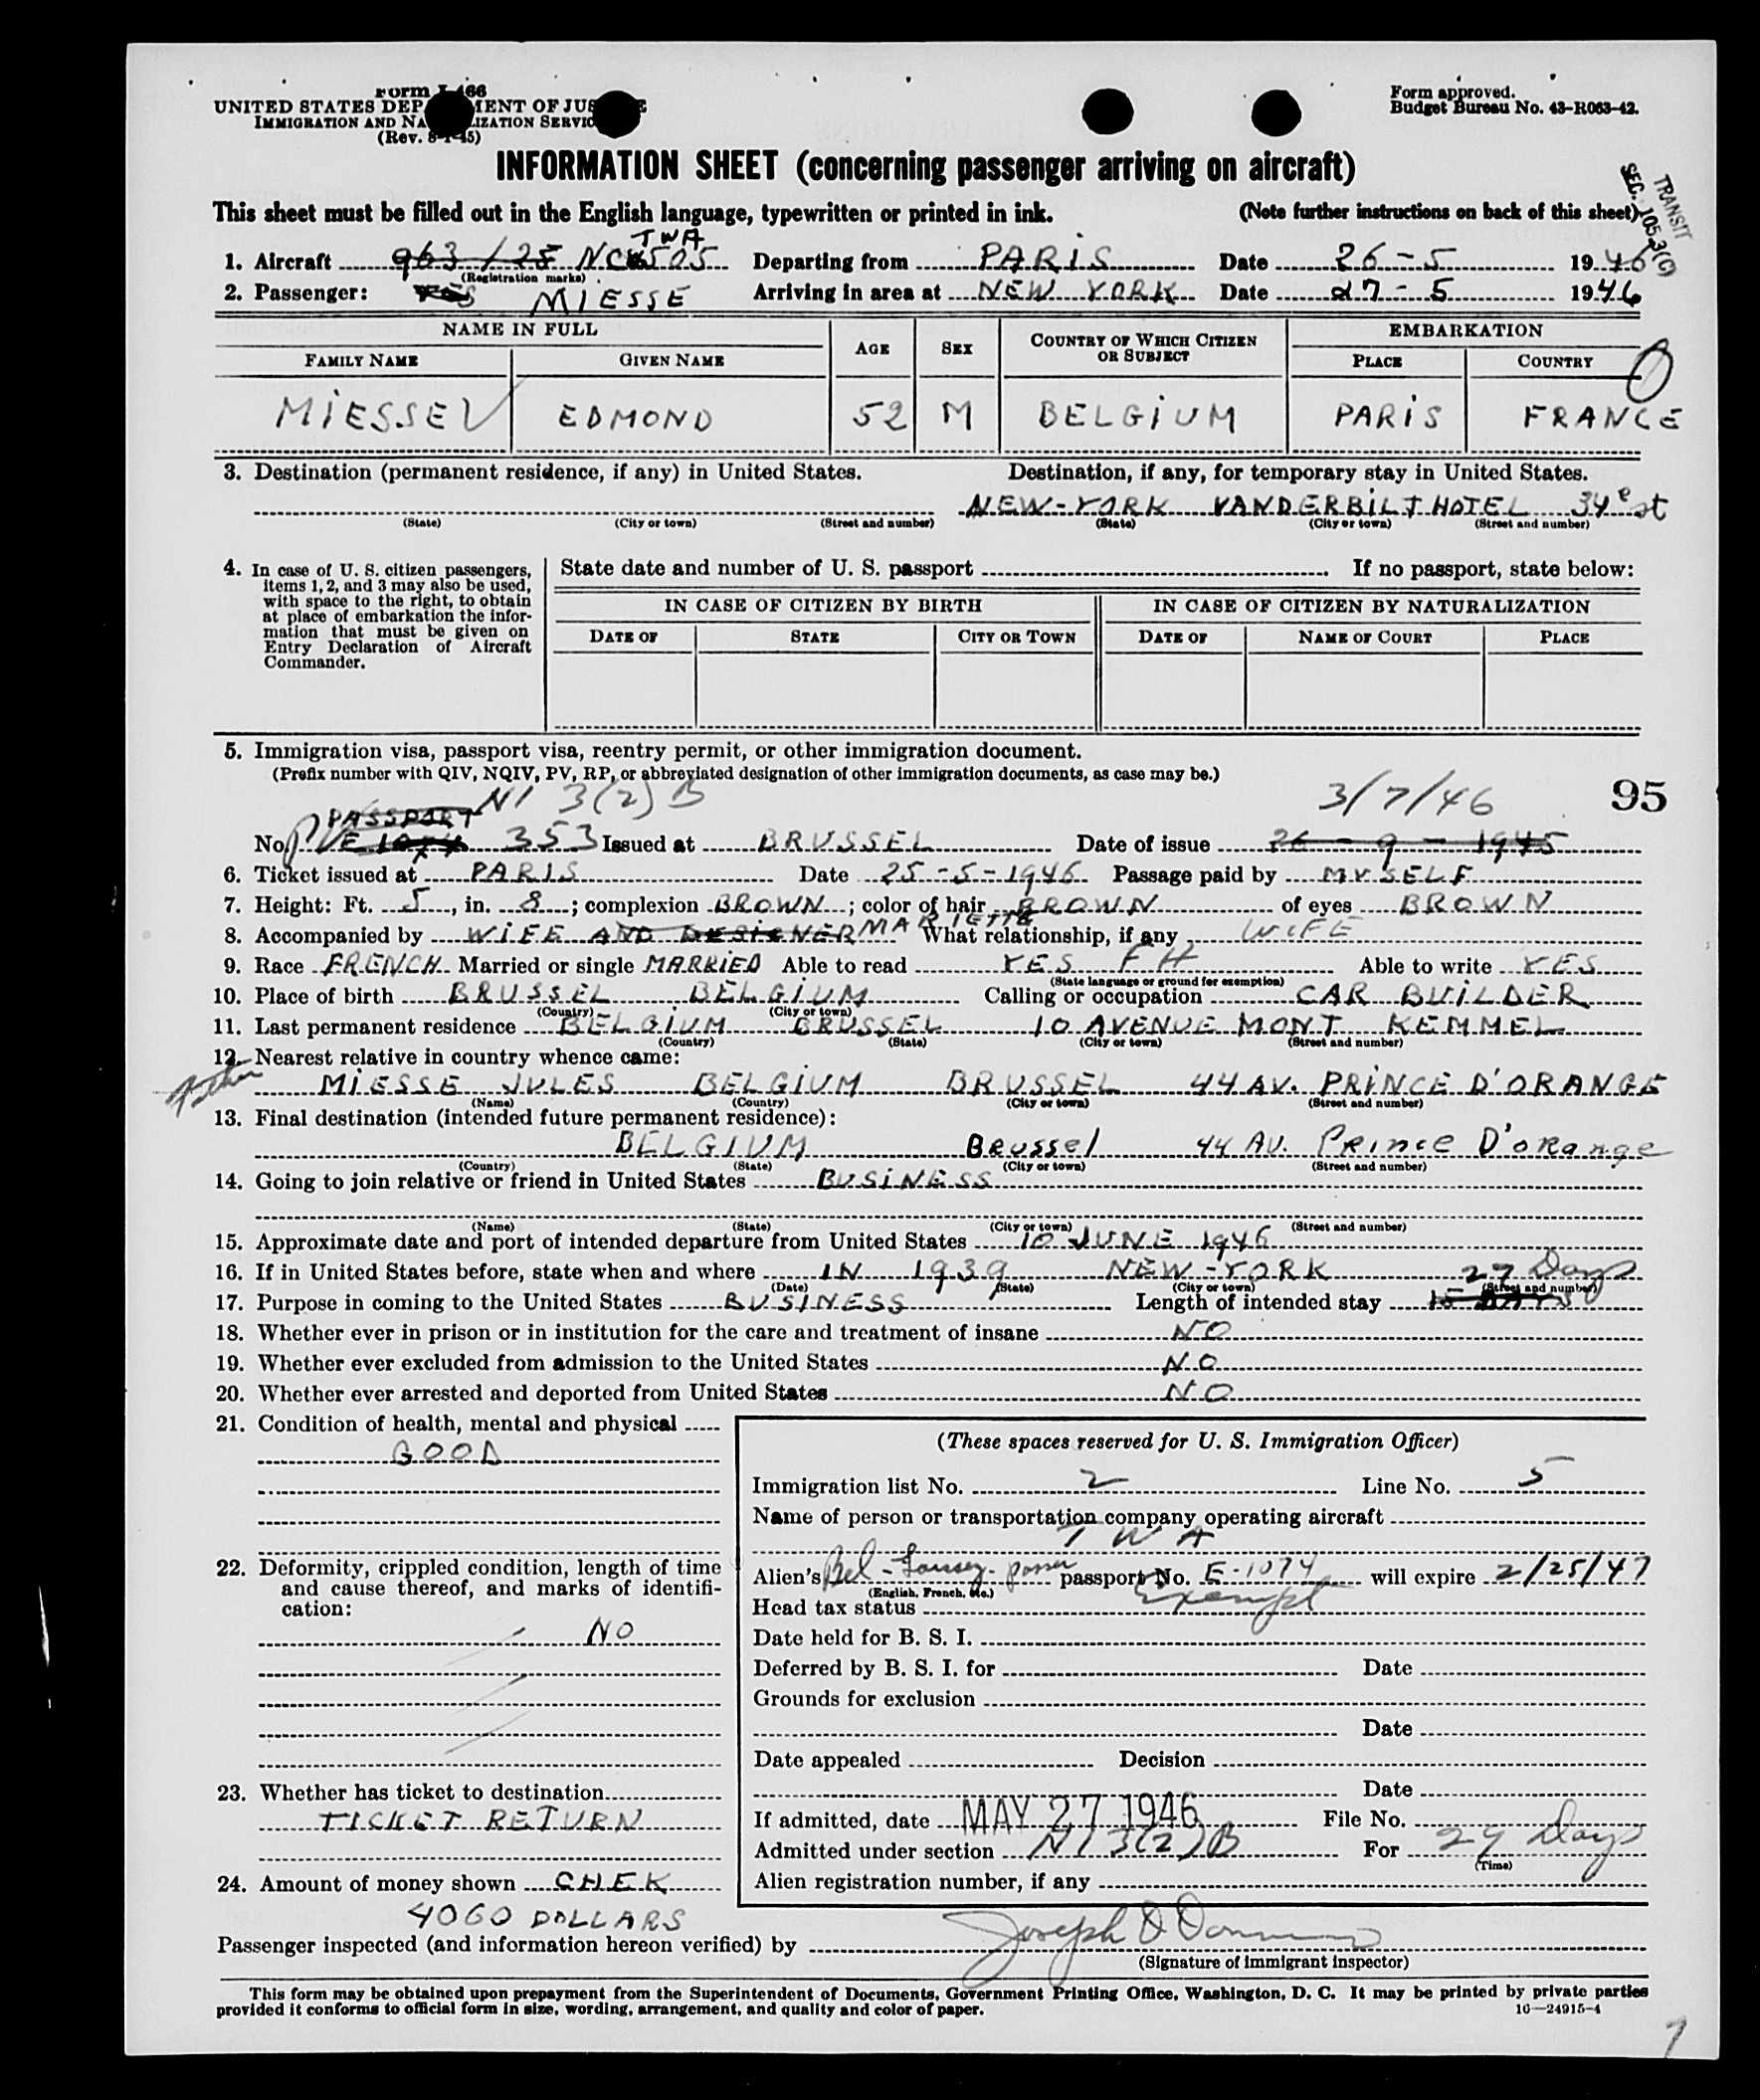 Form I-466
UNITED STATES DEPARTMENT OF JUSTICE
IMMIGRATION AND NATURALIZATION SERVICE
(Rev. 8-1-45)
Form approved.
Budget Bureau No. 43-R063-42.
INFORMATION SHEET (concerning passenger arriving on aircraft)
This sheet must be filled out in the English language, typewritten or printed in ink. (Note further instructions on back of this sheet)
TRANSIT
SEC. 105.3(C)
TWA
1. Aircraft 963/28 NC 505 Departing from PARIS Date 26-5 1946
(Registration marks)
2. Passenger: MIESSE Arriving in area at NEW YORK Date 27-5 1946
NAME IN FULL AGE SEX COUNTRY OF WHICH CITIZEN OR SUBJECT EMBARKATION
FAMILY NAME GIVEN NAME PLACE COUNTRY
MIESSE EDMOND 52 M BELGIUM PARIS FRANCE
3. Destination (permanent residence, if any) in United States. Destination, if any, for temporary stay in United States.
NEW-YORK VANDERBILT HOTEL 34e st
(State) (City or town) (Street and number) (State) (City or town) (Street and number)
4. In case of U. S. citizen passengers, items 1, 2, and 3 may also be used, with space to the right, to obtain at place of embarkation the information that must be given on Entry Declaration of Aircraft Commander.
State date and number of U. S. passport If no passport, state below:
IN CASE OF CITIZEN BY BIRTH IN CASE OF CITIZEN BY NATURALIZATION
DATE OF STATE CITY OR TOWN DATE OF NAME OF COURT PLACE
5. Immigration visa, passport visa, reentry permit, or other immigration document.
(Prefix number with QIV, NQIV, PV, RP, or abbreviated designation of other immigration documents, as case may be.)
PASSPORT NI 3(2)B 3/7/46 95
No. PV E 1074 353 Issued at BRUSSEL Date of issue 26-9-1945
6. Ticket issued at PARIS Date 25-5-1946 Passage paid by MYSELF
7. Height: Ft. 5, in. 8; complexion BROWN; color of hair BROWN of eyes BROWN
8. Accompanied by WIFE AND DESIGNER MARIETTE What relationship, if any WIFE
9. Race FRENCH Married or single MARRIED Able to read YES FH Able to write YES
(State language or ground for exemption)
10. Place of birth BRUSSEL BELGIUM Calling or occupation CAR BUILDER
(Country) (City or town)
11. Last permanent residence BELGIUM BRUSSEL 10 AVENUE MONT KEMMEL
(Country) (State) (City or town) (Street and number)
12. Nearest relative in country whence came:
Father MIESSE JULES BELGIUM BRUSSEL 44 AV. PRINCE D'ORANGE
(Name) (Country) (City or town) (Street and number)
13. Final destination (intended future permanent residence):
BELGIUM Brussel 44 AV. Prince D'orange
(Country) (State) (City or town) (Street and number)
14. Going to join relative or friend in United States BUSINESS
(Name) (State) (City or town) (Street and number)
15. Approximate date and port of intended departure from United States 10 JUNE 1946
16. If in United States before, state when and where IN 1939 NEW-YORK
(Date) (State) (City or town) (Street and number)
29 Days
17. Purpose in coming to the United States BUSINESS Length of intended stay 15 DAYS
18. Whether ever in prison or in institution for the care and treatment of insane NO
19. Whether ever excluded from admission to the United States NO
20. Whether ever arrested and deported from United States NO
21. Condition of health, mental and physical
GOOD
22. Deformity, crippled condition, length of time and cause thereof, and marks of identification:
NO
23. Whether has ticket to destination
TICKET RETURN
24. Amount of money shown CHEK
4060 DOLLARS
(These spaces reserved for U. S. Immigration Officer)
Immigration list No. 2 Line No. 5
Name of person or transportation company operating aircraft
TWA
Alien's Bel- passport No. E-1074 will expire 2/25/47
(English, French, etc.)
Head tax status Exempt
Date held for B. S. I.
Deferred by B. S. I. for Date
Grounds for exclusion
Date
Date appealed Decision
Date
If admitted, date MAY 27 1946 File No.
Admitted under section NI 3(2)B For 29 Days
(Time)
Alien registration number, if any
Passenger inspected (and information hereon verified) by Joseph
(Signature of immigrant inspector)
This form may be obtained upon prepayment from the Superintendent of Documents, Government Printing Office, Washington, D. C. It may be printed by private parties
provided it conforms to official form in size, wording, arrangement, and quality and color of paper. 16—24915-4